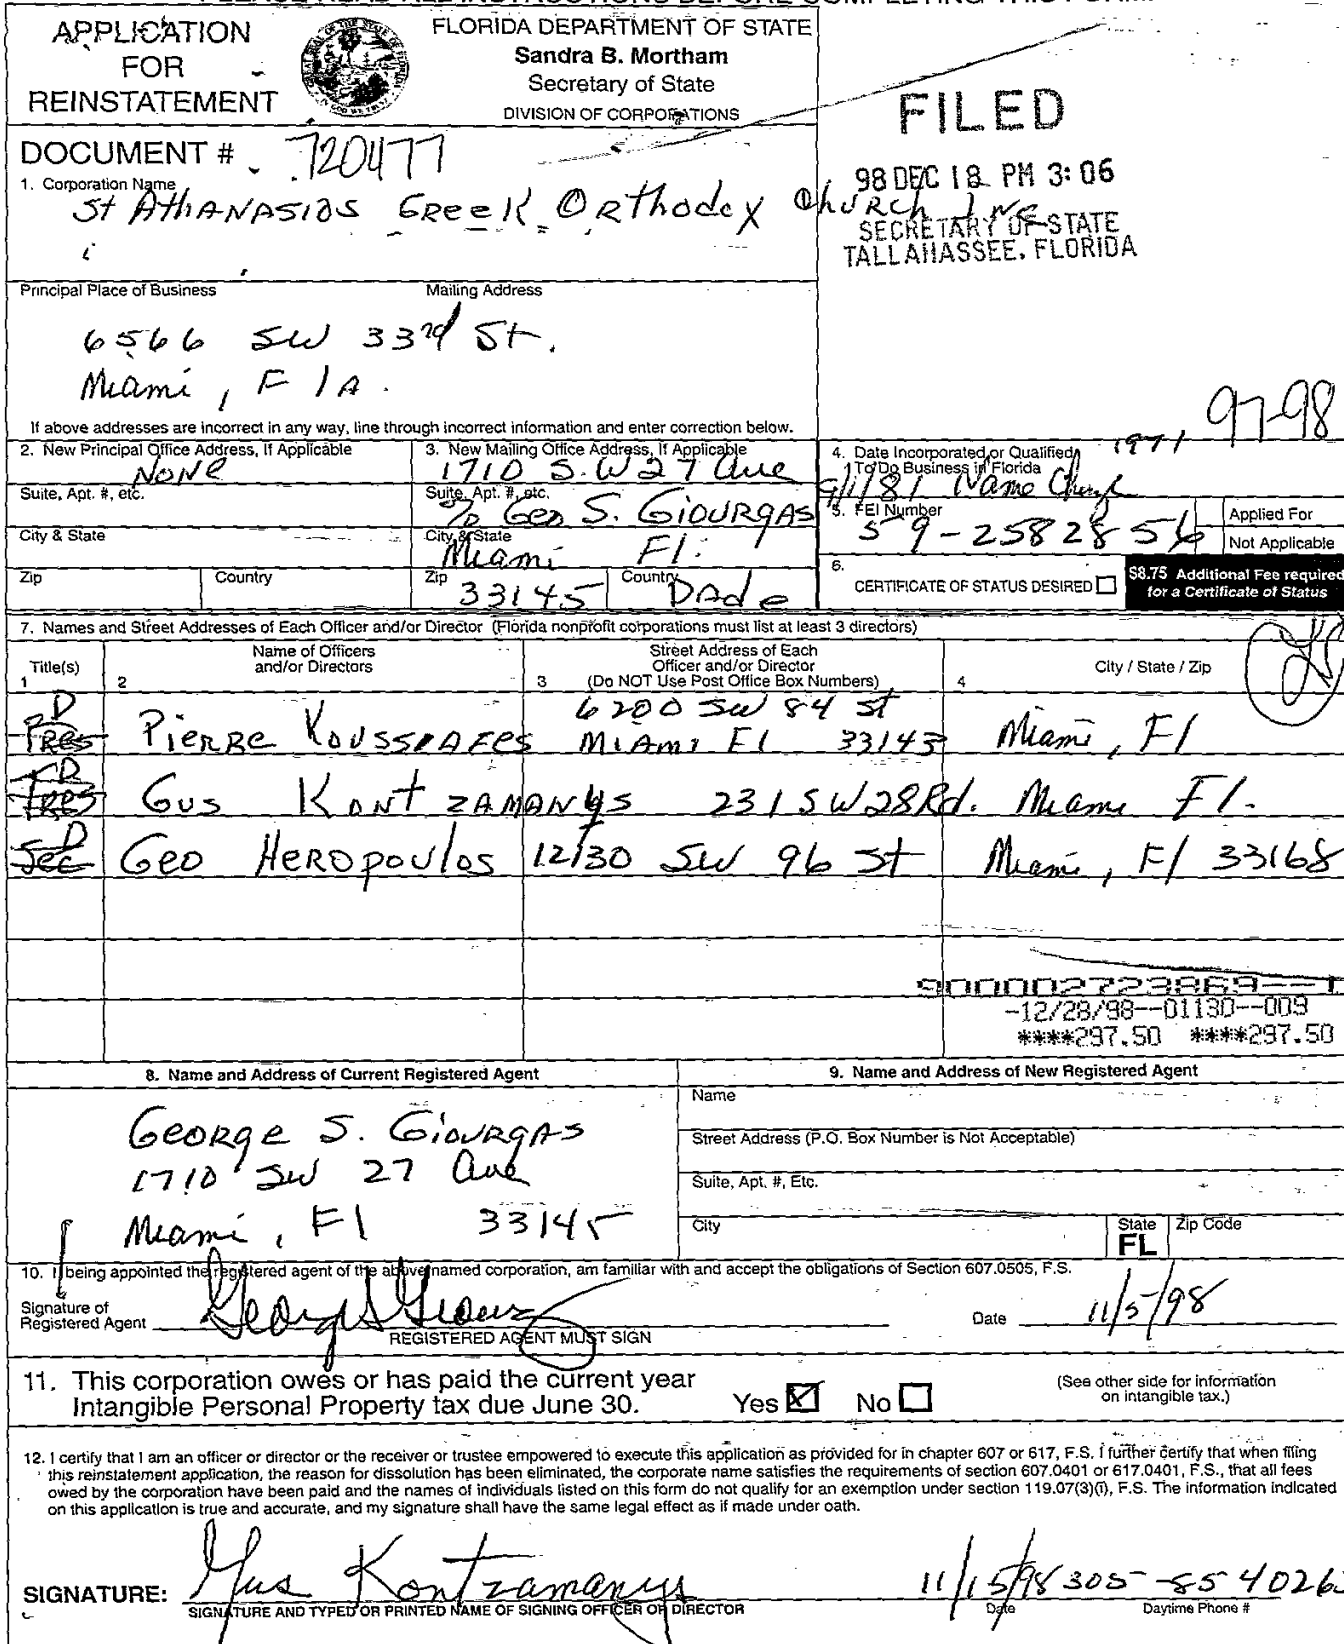 APPLICATION
FOR
REINSTATEMENT
FLORIDA DEPARTMENT OF STATE
Sandra B. Mortham
Secretary of State
DIVISION OF CORPORATIONS
FILED
98 DEC 18 PM 3:06
SECRETARY OF STATE
TALLAHASSEE, FLORIDA
DOCUMENT # 720477
1. Corporation Name
St AThANASIOS GReeK ORthodox ChURCh INC
Principal Place of Business Mailing Address
6566 SW 33rd St.
Miami, FlA.
If above addresses are incorrect in any way, line through incorrect information and enter correction below.
97-98
2. New Principal Office Address, If Applicable
NONE
Suite, Apt. #, etc.
City & State
Zip Country
3. New Mailing Office Address, If Applicable
1710 S.W 27 Ave
Suite, Apt. #, etc.
% Geo S. GIOURGAS
City & State
Miami Fl.
Zip Country
33145 Dade
4. Date Incorporated or Qualified
To Do Business in Florida
1971
9/1/81 Name Change
5. FEI Number
59-2582856
Applied For
Not Applicable
6.
CERTIFICATE OF STATUS DESIRED
$8.75 Additional Fee required
for a Certificate of Status
7. Names and Street Addresses of Each Officer and/or Director (Florida nonprofit corporations must list at least 3 directors)
Title(s)
1
Name of Officers
and/or Directors
2
Street Address of Each
Officer and/or Director
3 (Do NOT Use Post Office Box Numbers)
City / State / Zip
4
D
Pres PieRRe 6200 SW 84 St
MIAMI Fl 33143 Miami, Fl
D
Tres Gus KONTZAMANYS 231 SW 28 Rd. Miami Fl.
D
Sec Geo HeROpoulos 12130 SW 96 St Miami, Fl 33168
900002723869--1
-12/28/98--01130--009
****297.50 ****297.50
8. Name and Address of Current Registered Agent
GeoRge S. GiOURGAS
1710 SW 27 Ave
Miami, Fl 33145
9. Name and Address of New Registered Agent
Name
Street Address (P.O. Box Number is Not Acceptable)
Suite, Apt. #, Etc.
City State Zip Code
FL
10. I being appointed the registered agent of the above named corporation, am familiar with and accept the obligations of Section 607.0505, F.S.
Signature of
Registered Agent
REGISTERED AGENT MUST SIGN
Date 11/5/98
11. This corporation owes or has paid the current year
Intangible Personal Property tax due June 30. Yes No
(See other side for information
on intangible tax.)
12. I certify that I am an officer or director or the receiver or trustee empowered to execute this application as provided for in chapter 607 or 617, F.S. I further certify that when filing
this reinstatement application, the reason for dissolution has been eliminated, the corporate name satisfies the requirements of section 607.0401 or 617.0401, F.S., that all fees
owed by the corporation have been paid and the names of individuals listed on this form do not qualify for an exemption under section 119.07(3)(i), F.S. The information indicated
on this application is true and accurate, and my signature shall have the same legal effect as if made under oath.
SIGNATURE: Gus Kontzamanys 11/15/98 305-854026
SIGNATURE AND TYPED OR PRINTED NAME OF SIGNING OFFICER OR DIRECTOR Date Daytime Phone #